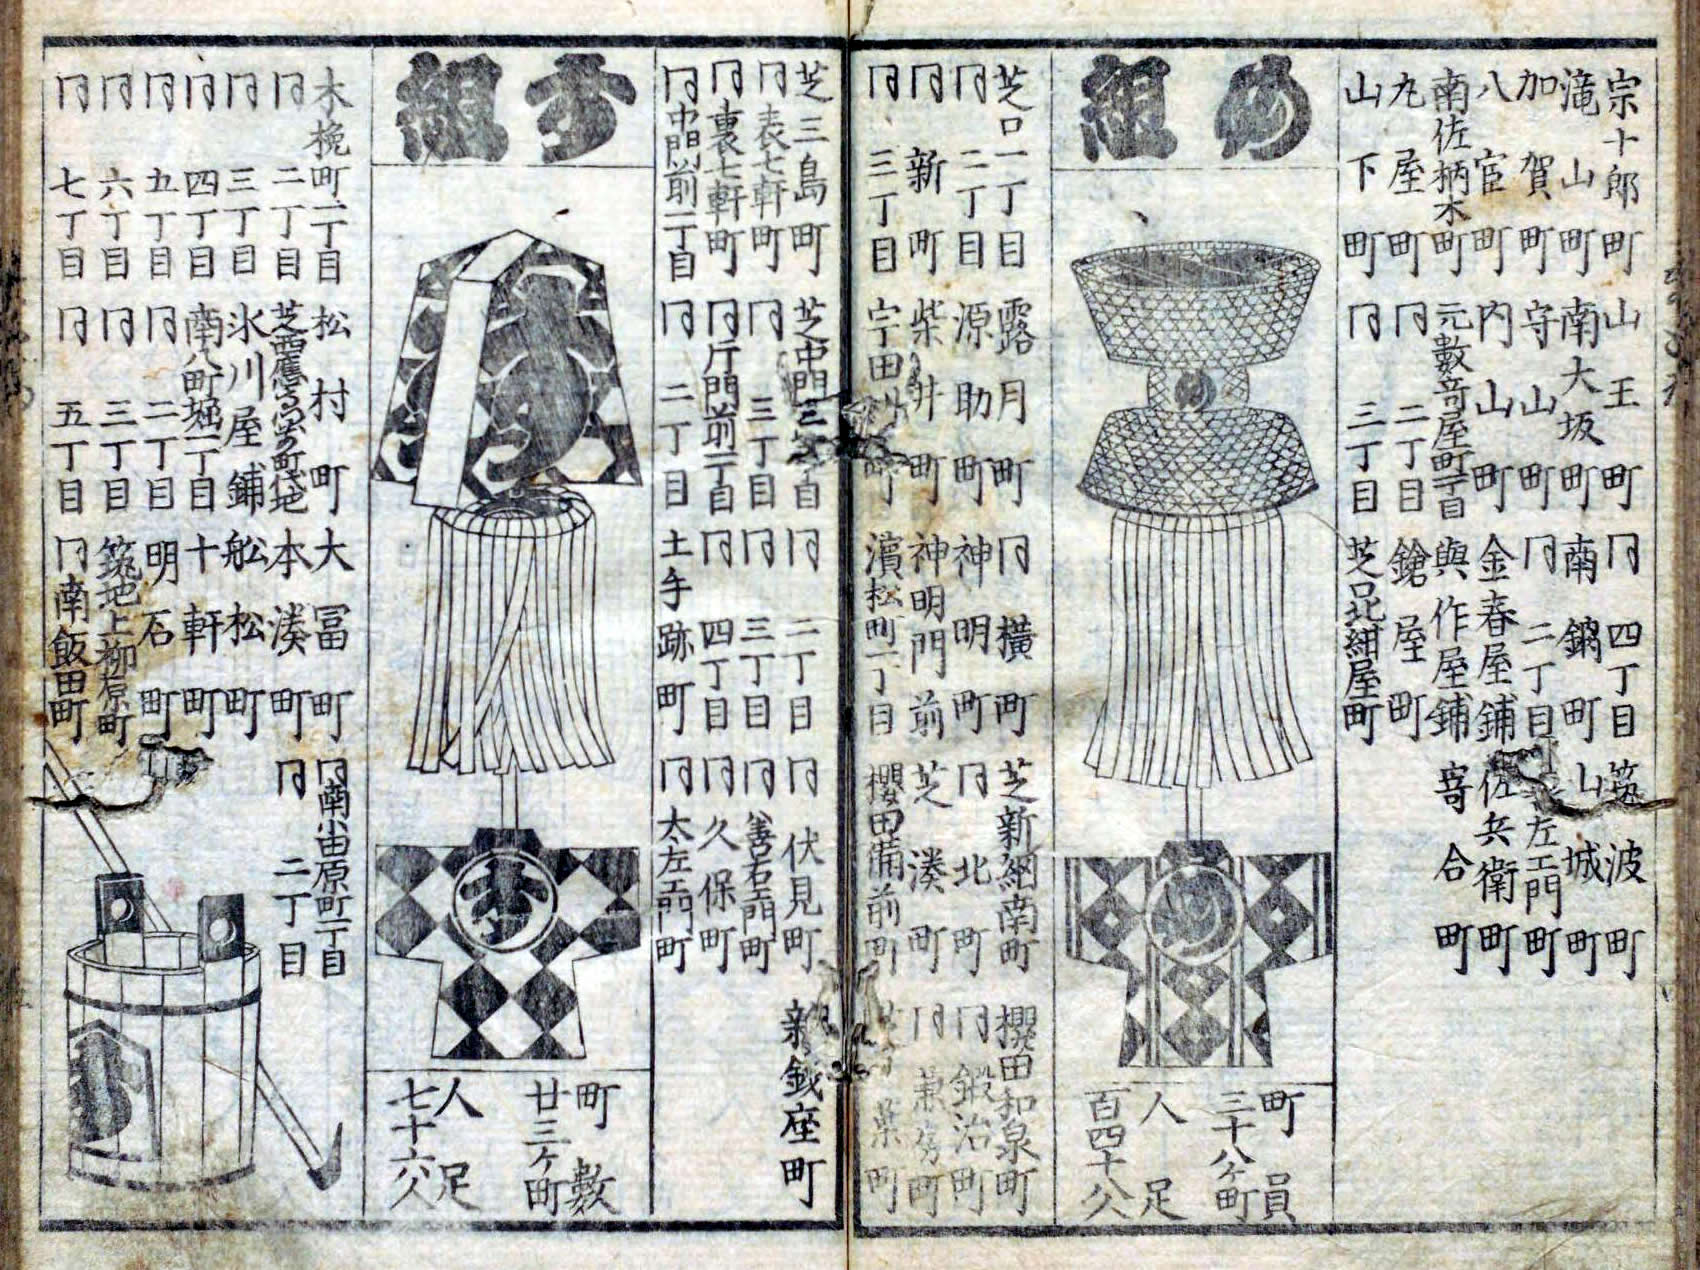 宗十郎町 山王町 冂四丁目 筑波町
滝山町 南大坂町 南鍋町 山城町
加賀町 守山町 冂二丁目 左エ門町
八官町 内山町 金春屋鋪 佐兵衛町
南佐柄木町 元數寄屋町一丁目 與作屋鋪 寄合町
丸屋町 冂二丁目 鎗屋町
山下町 冂三丁目 芝口北紺屋町
組
町員
三十八ケ町
人足
百四十八人
芝口一丁目 露月町 冂横町 芝新網南町 櫻田和泉町
冂二丁目 源助町 神明町 冂北町 冂鍛冶町
冂新町 柴井町 神明門前 芝湊町 冂兼房町
冂三丁目 宇田川町 濱松町一丁目 櫻田備前町
芝三島町 芝中門 冂二丁目 冂伏見町 新錢座町
冂表七軒町 冂三丁目 冂三丁目 冂善右エ門町
冂裏七軒町 冂片門前一丁目 冂四丁目 冂久保町
冂中門前一丁目 冂二丁目 土手跡町 冂太左エ門町
組
町數
廿三ケ町
人足
七十六人
木挽町一丁目 松村町 大冨町 冂南小田原町一丁目
冂二丁目 芝西應寺町代地 本湊町 冂二丁目
冂三丁目 氷川屋鋪 舩松町
冂四丁目 南八町堀一丁目 十軒町
冂五丁目 冂二丁目 明石町
冂六丁目 冂三丁目 築地上柳原町
冂七丁目 冂五丁目 冂南飯田町